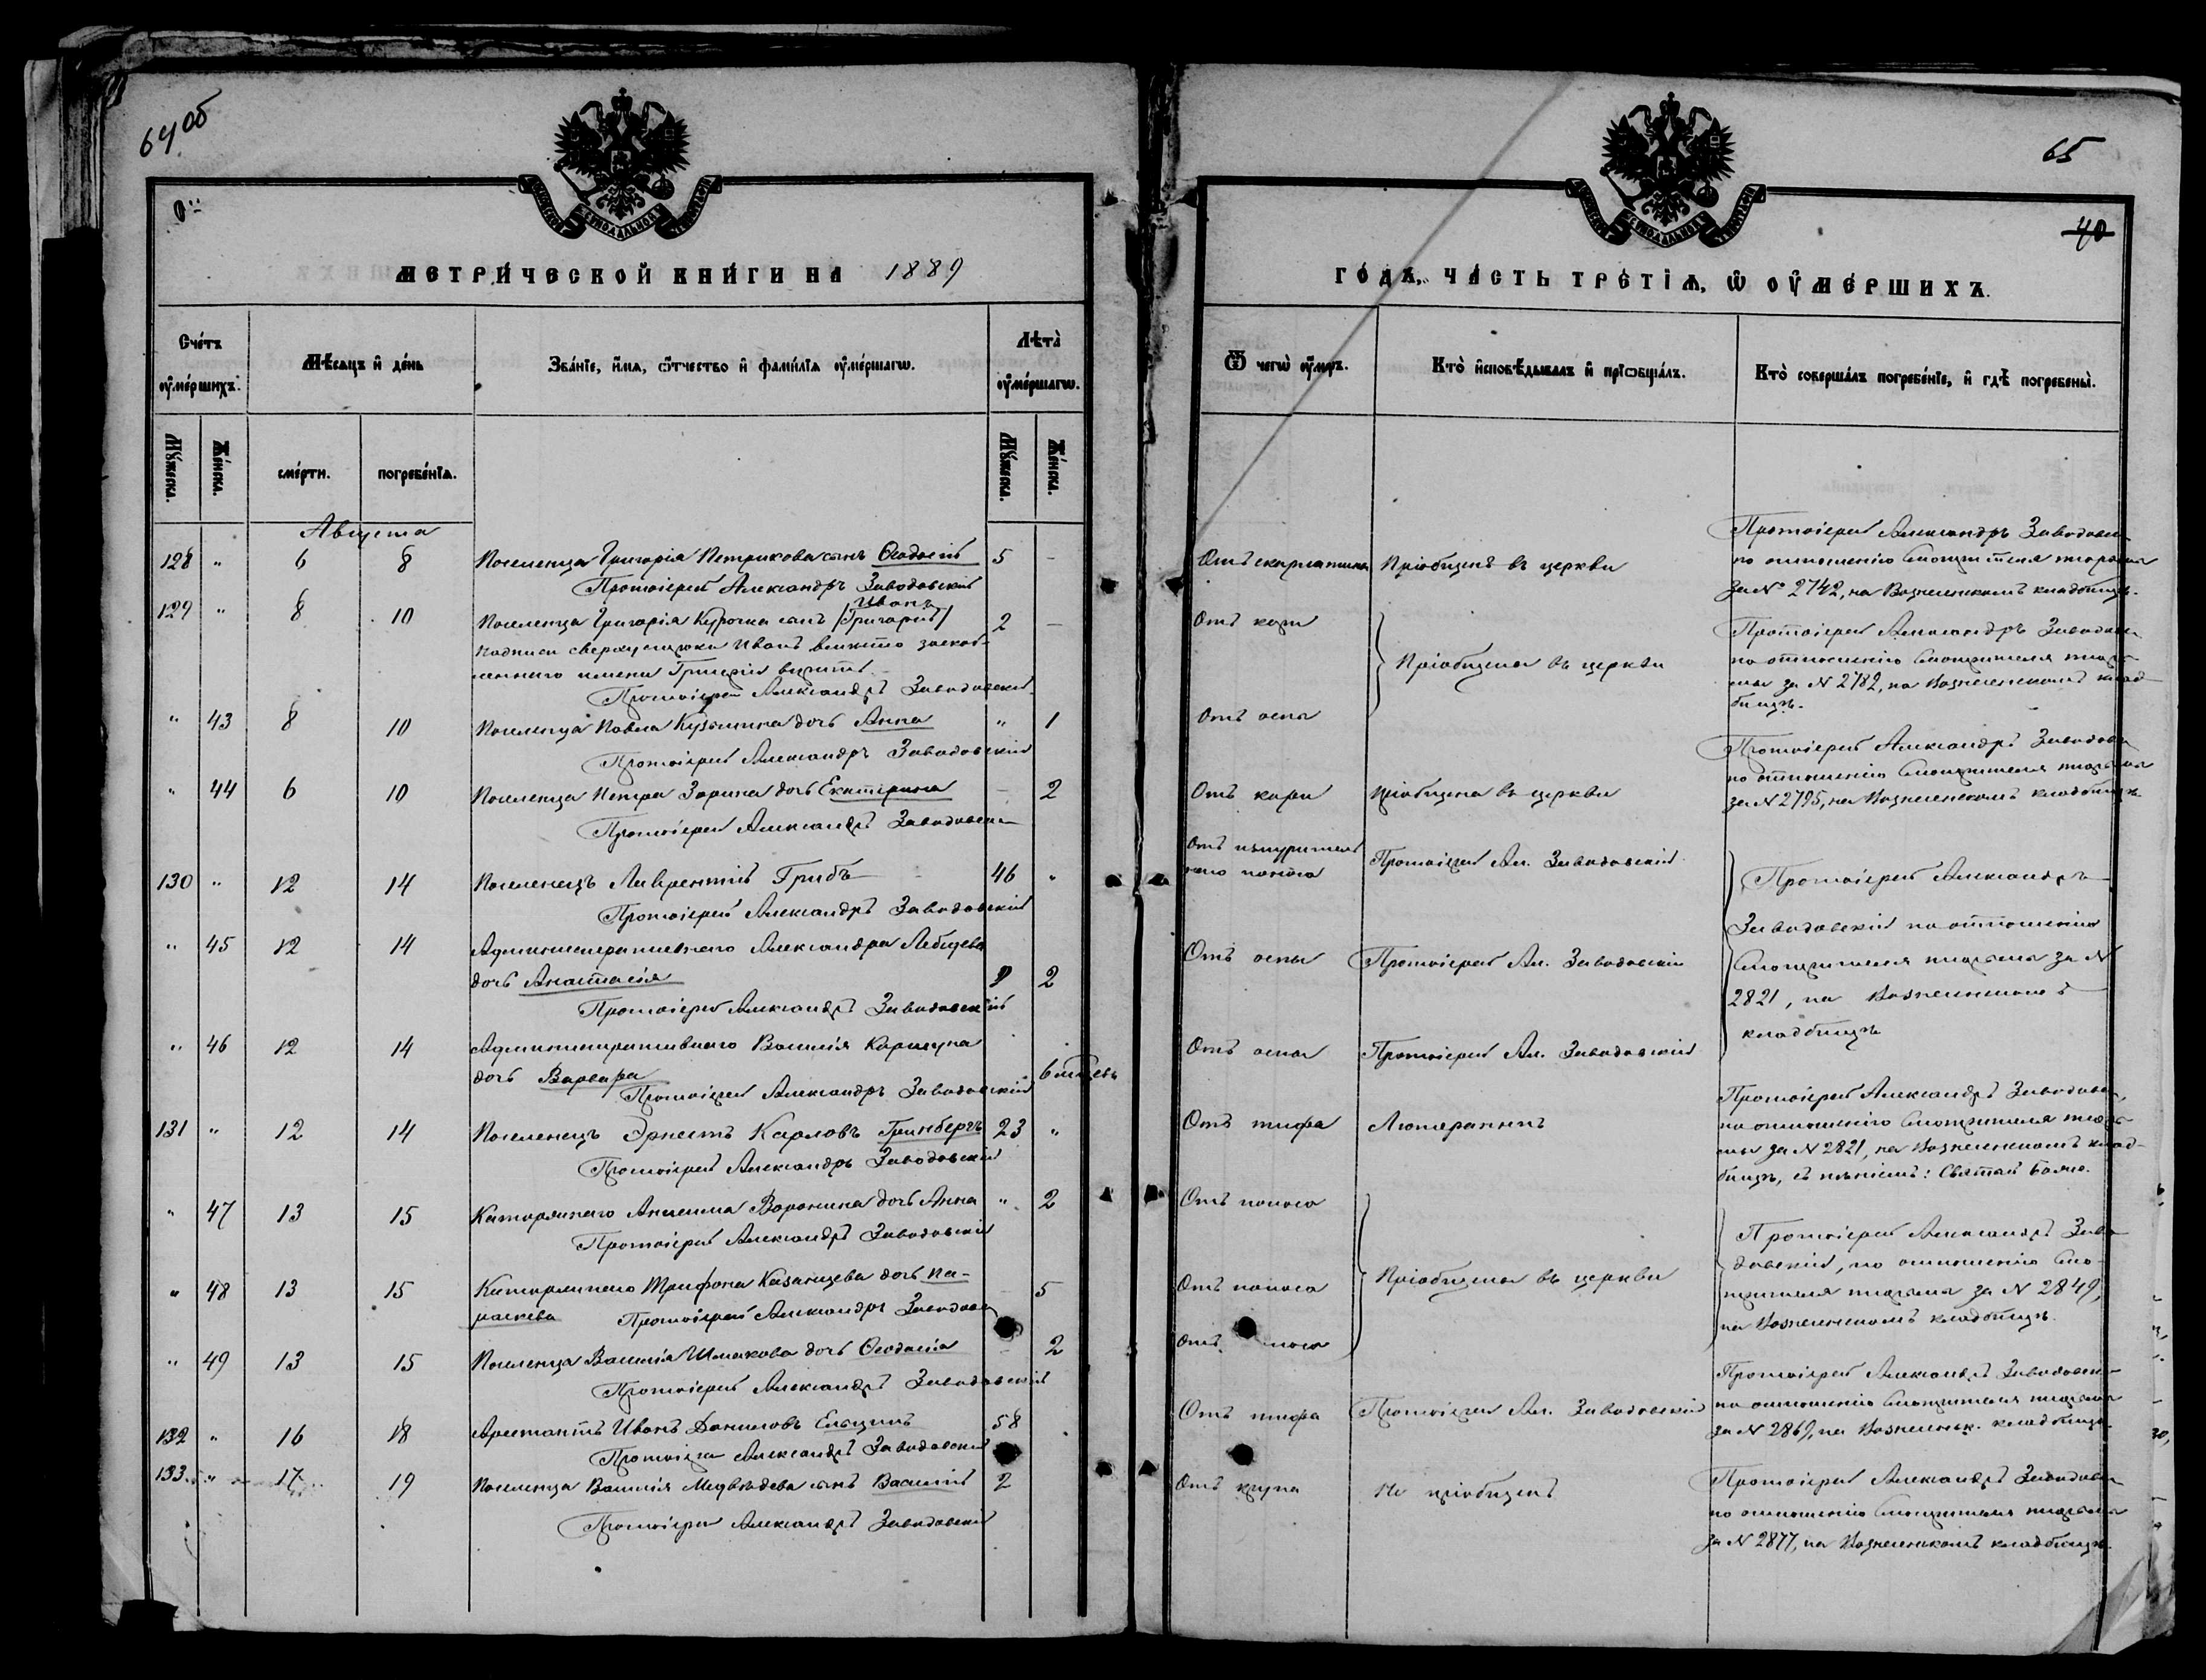 64 об
МЕТРИЧЕСКОЙ КНИГИ НА 1889
Счетъ умершихъ.
Мѣсяцъ и день
Званіе, имя, отчество и фамилія умершаго.
Лѣта умершаго.
Мужеска.
Женска.
смерти.
погребенія.
Мужеска.
Женска.
Августа
128 " 6 8 Поселенца Григорія Петрикова сынъ Ѳеодосій 5 -
Протоіерей Александръ Заводовскій
Иванъ
129 " 8 10 Поселенца Григорія Курочка сынъ /Григорій/ 2 -
Надписи сверху строки Иванъ вмѣсто
имени Григорій вѣрить.
Протоіерей Александръ Заводовскій
" 43 8 10 Поселенца Павла Кузьмина дочь Анна " 1
Протоіерей Александръ Заводовскій
" 44 6 10 Поселенца Петра Зорина дочь Екатерина - 2
Протоіерей Александръ Заводовскій
130 " 12 14 Поселенецъ Лаврентій Грибъ 46 "
Протоіерей Александръ Заводовскій
" 45 12 14 Административнаго Александра Лебедева
дочь Анастасія 2
Протоіерей Александръ Заводовскій
" 46 12 14 Административнаго Василія
дочь Варвара 6 мѣсцевъ
Протоіерей Александръ Заводовскій
131 " 12 14 Поселенецъ Эрнестъ Карловъ Гринбергъ 23 "
Протоіерей Александръ Заводовскій
" 47 13 15 Каторжнаго Анисима Воронина дочь Анна " 2
Протоіерей Александръ Заводовскій
" 48 13 15 Каторжнаго Трифона Казанцева дочь Па- 5
раскева Протоіерей Александръ Заводовск
" 49 13 15 Поселенца Василія Шмакова дочь Ѳеодосія - 2
Протоіерей Александръ Заводовскій
132 " 16 18 Арестантъ Иванъ Даниловъ Ельцинъ 58
Протоіерей Александръ Заводовскій
133 " 17 19 Поселенца Василія Медвѣдева сынъ Василій 2
Протоіерей Александръ Заводовскій
65
40
ГОДЪ, ЧАСТЬ ТРЕТІЯ, О УМЕРШИХЪ.
Отъ чего умеръ.
Кто исповѣдывалъ и пріобщалъ.
Кто совершалъ погребеніе, и гдѣ погребены.
Отъ скарлатины
Пріобщенъ въ церкви
Протоіерей Александръ Заводовск
по отношенію Смотрителя тюрьмы
за № 2742, на Вознесенскомъ кладбищѣ.
Отъ кори
Пріобщены въ церкви
Протоіерей Александръ Заводовск
по отношенію Смотрителя тюрь-
мы за № 2782, на Вознесенскомъ клад-
бищѣ.
Отъ оспы
Протоіерей Александръ Заводовск
по отношенію Смотрителя тюрьмы
за № 2795, на Вознесенскомъ кладбищѣ
Отъ кори
Пріобщена въ церкви
Отъ изнуритель
наго поноса
Протоіерей Ал. Заводовскій
Протоіерей Александръ
Заводовскій по отношенію
Смотрителя тюрьмы за №
2821, на Вознесенскомъ
кладбищѣ
Отъ оспы
Протоіерей Ал. Заводовскій
Отъ оспы
Протоіерей Ал. Заводовскій
Отъ тифа
Лютеранинъ
Протоіерей Александръ Заводовск,
по отношенію Смотрителя тюрь-
мы за № 2821, на Вознесенскомъ клад-
бищѣ, съ пѣніемъ: Святый Боже.
Отъ поноса
Пріобщены въ церкви
Протоіерей Александръ Заво-
довскій, по отношенію Смо-
трителя тюрьмы за № 2849,
на Вознесенскомъ кладбищѣ.
Отъ поноса
Отъ носа
Отъ тифа
Протоіерей Ал. Заводовскій
Протоіерей Александръ Заводовск
по отношенію Смотрителя тюрьмы
за № 2869, на Вознесенск. кладбищѣ.
Отъ крупа
Не пріобщенъ
Протоіерей Александръ Заводовск
по отношенію Смотрителя тюрьмы
за № 2877, на Вознесенскомъ кладбищѣ.